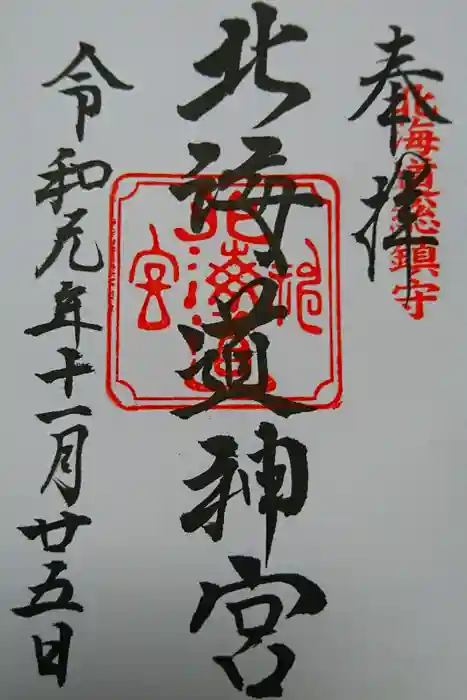 奉拝
北海道総鎮守
北海道神宮
北海道
神
宮
令和元年十一月廿五日